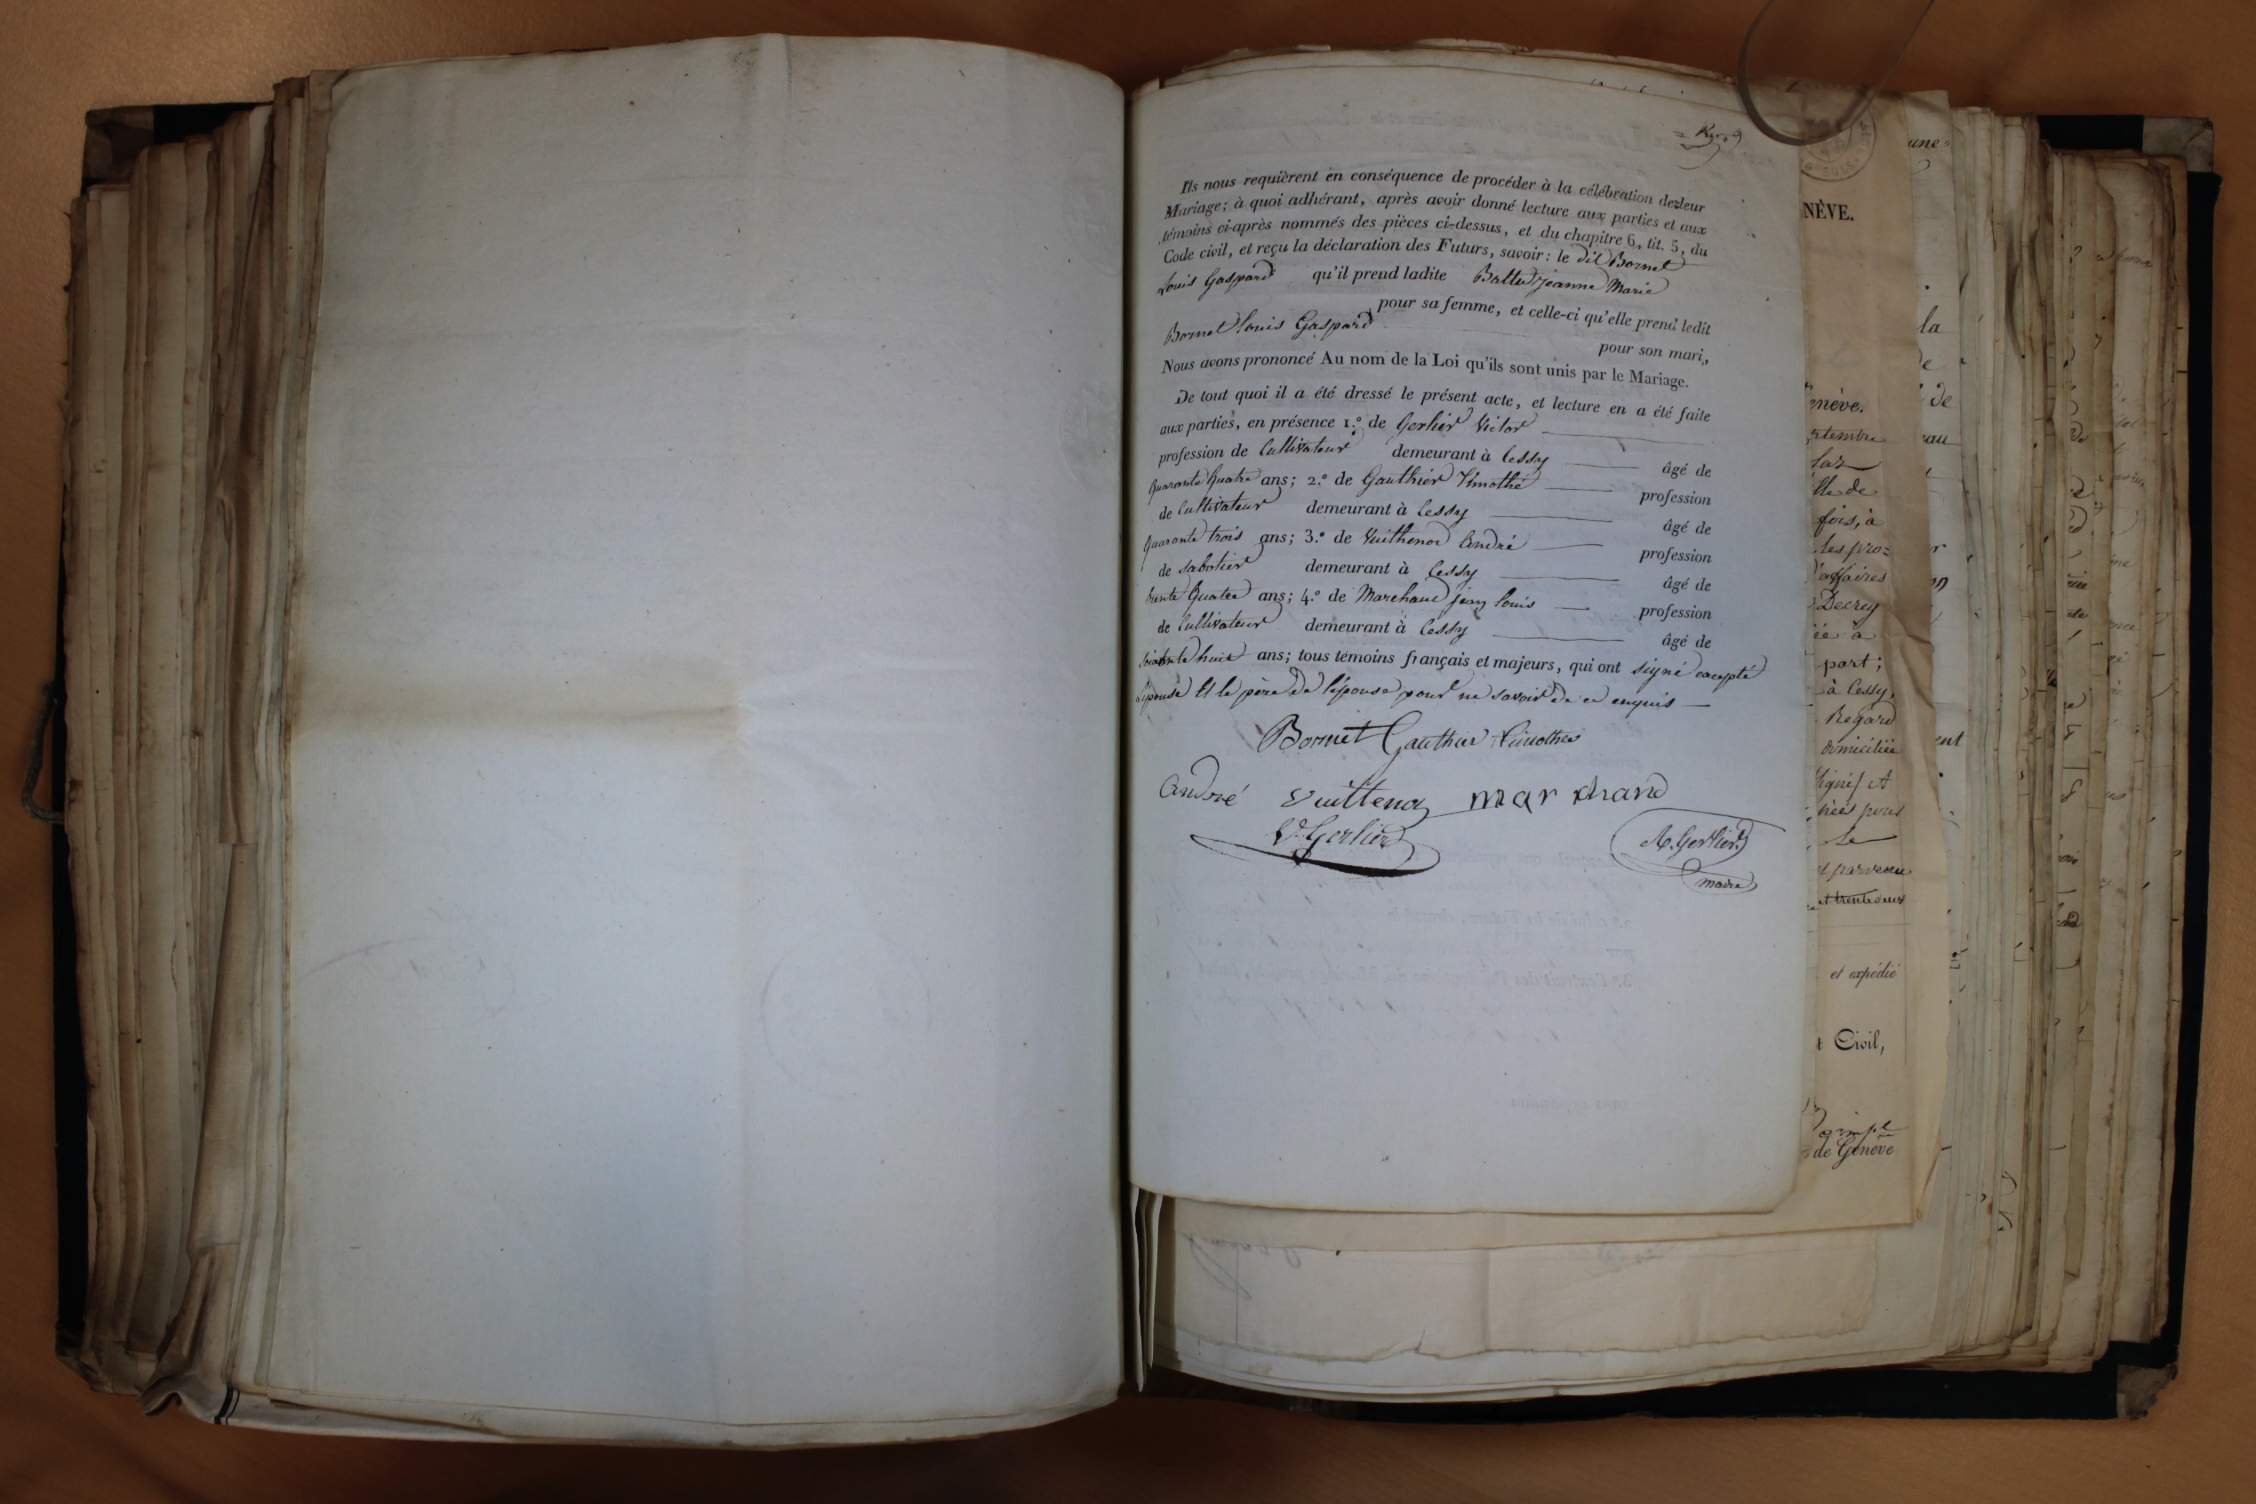 Ils nous requièrent en conséquence de procéder à la célébration de leur
Mariage; à quoi adhérant, après avoir donné lecture aux parties et aux
témoins ci-après nommés des pièces ci-dessus, et du chapitre 6, tit. 5, du
Code civil, et reçu la déclaration des Futurs, savoir: le dit Bornet
Louis Gaspard qu'il prend ladite Jeanne Marie
pour sa femme, et celle-ci qu'elle prend ledit
Bornet Louis Gaspard
pour son mari,
Nous avons prononcé Au nom de la Loi qu'ils sont unis par le Mariage.
De tout quoi il a été dressé le présent acte, et lecture en a été faite
aux parties, en présence 1.º de Gerlier Victor
profession de Cultivateur demeurant à Cessy âgé de
quarante quatre ans; 2.º de Gauthier Timothé profession
de Cultivateur demeurant à Cessy âgé de
quarante trois ans; 3.º de Vuithenod André profession
de sabotier demeurant à Cessy âgé de
trente quatre ans; 4.º de Marchand jean louis profession
de Cultivateur demeurant à Cessy âgé de
soixante huit ans; tous témoins français et majeurs, qui ont signé excepté
l'épouse et le père de l'épouse pour ne savoir de ce enquis
Bornet Gauthier Timothée
André Vuittenod marchand
V. Gerlier A. Gerlier
maire
NÈVE.
enève.
fois, à
les pro=
d'affaires
Decrey
part;
à Cessy,
Regard
domiciliée
et expédié
Civil,
de Genève